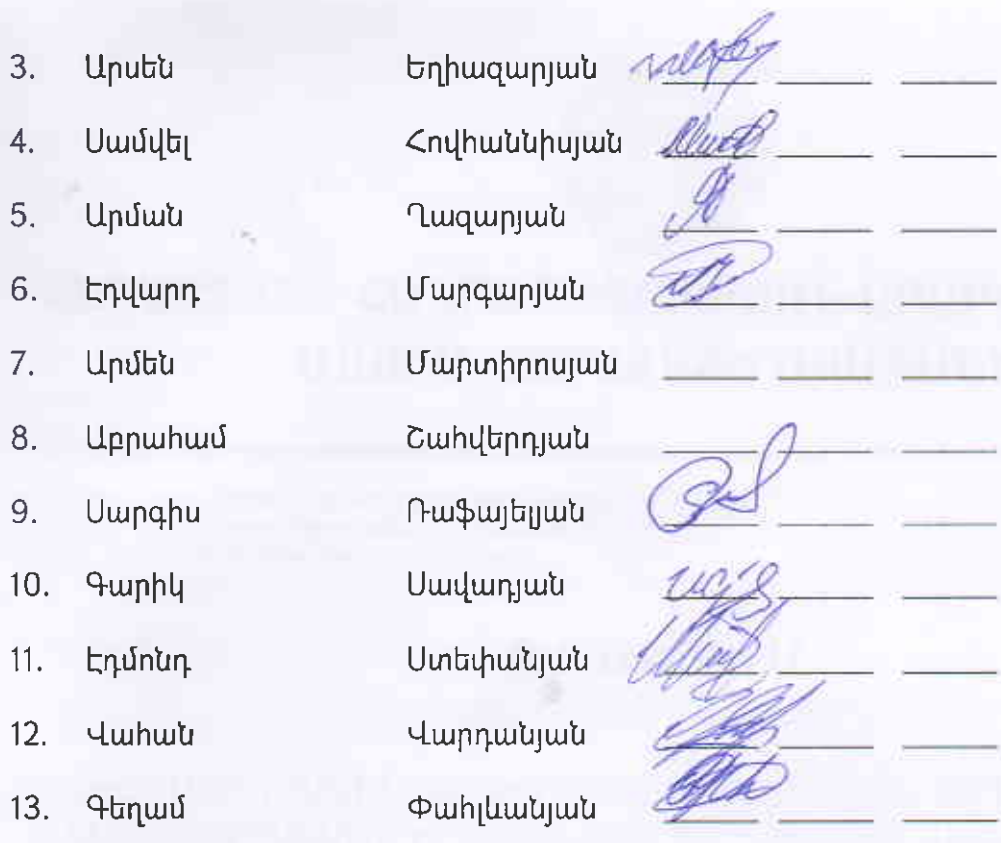 3. Արսեն Եղիազարյան ____ ____ ____
4. Սամվել Հովհաննիսյան ____ ____ ____
5. Արման Ղազարյան ____ ____ ____
6. Էդվարդ Մարգարյան ____ ____ ____
7. Արմեն Մարտիրոսյան ____ ____ ____
8. Աբրահամ Շահվերդյան ____ ____ ____
9. Սարգիս Ռաֆայելյան ____ ____ ____
10. Գարիկ Սավադյան ____ ____ ____
11. Էդմոնդ Ստեփանյան ____ ____ ____
12. Վահան Վարդանյան ____ ____ ____
13. Գեղամ Փահլևանյան ____ ____ ____